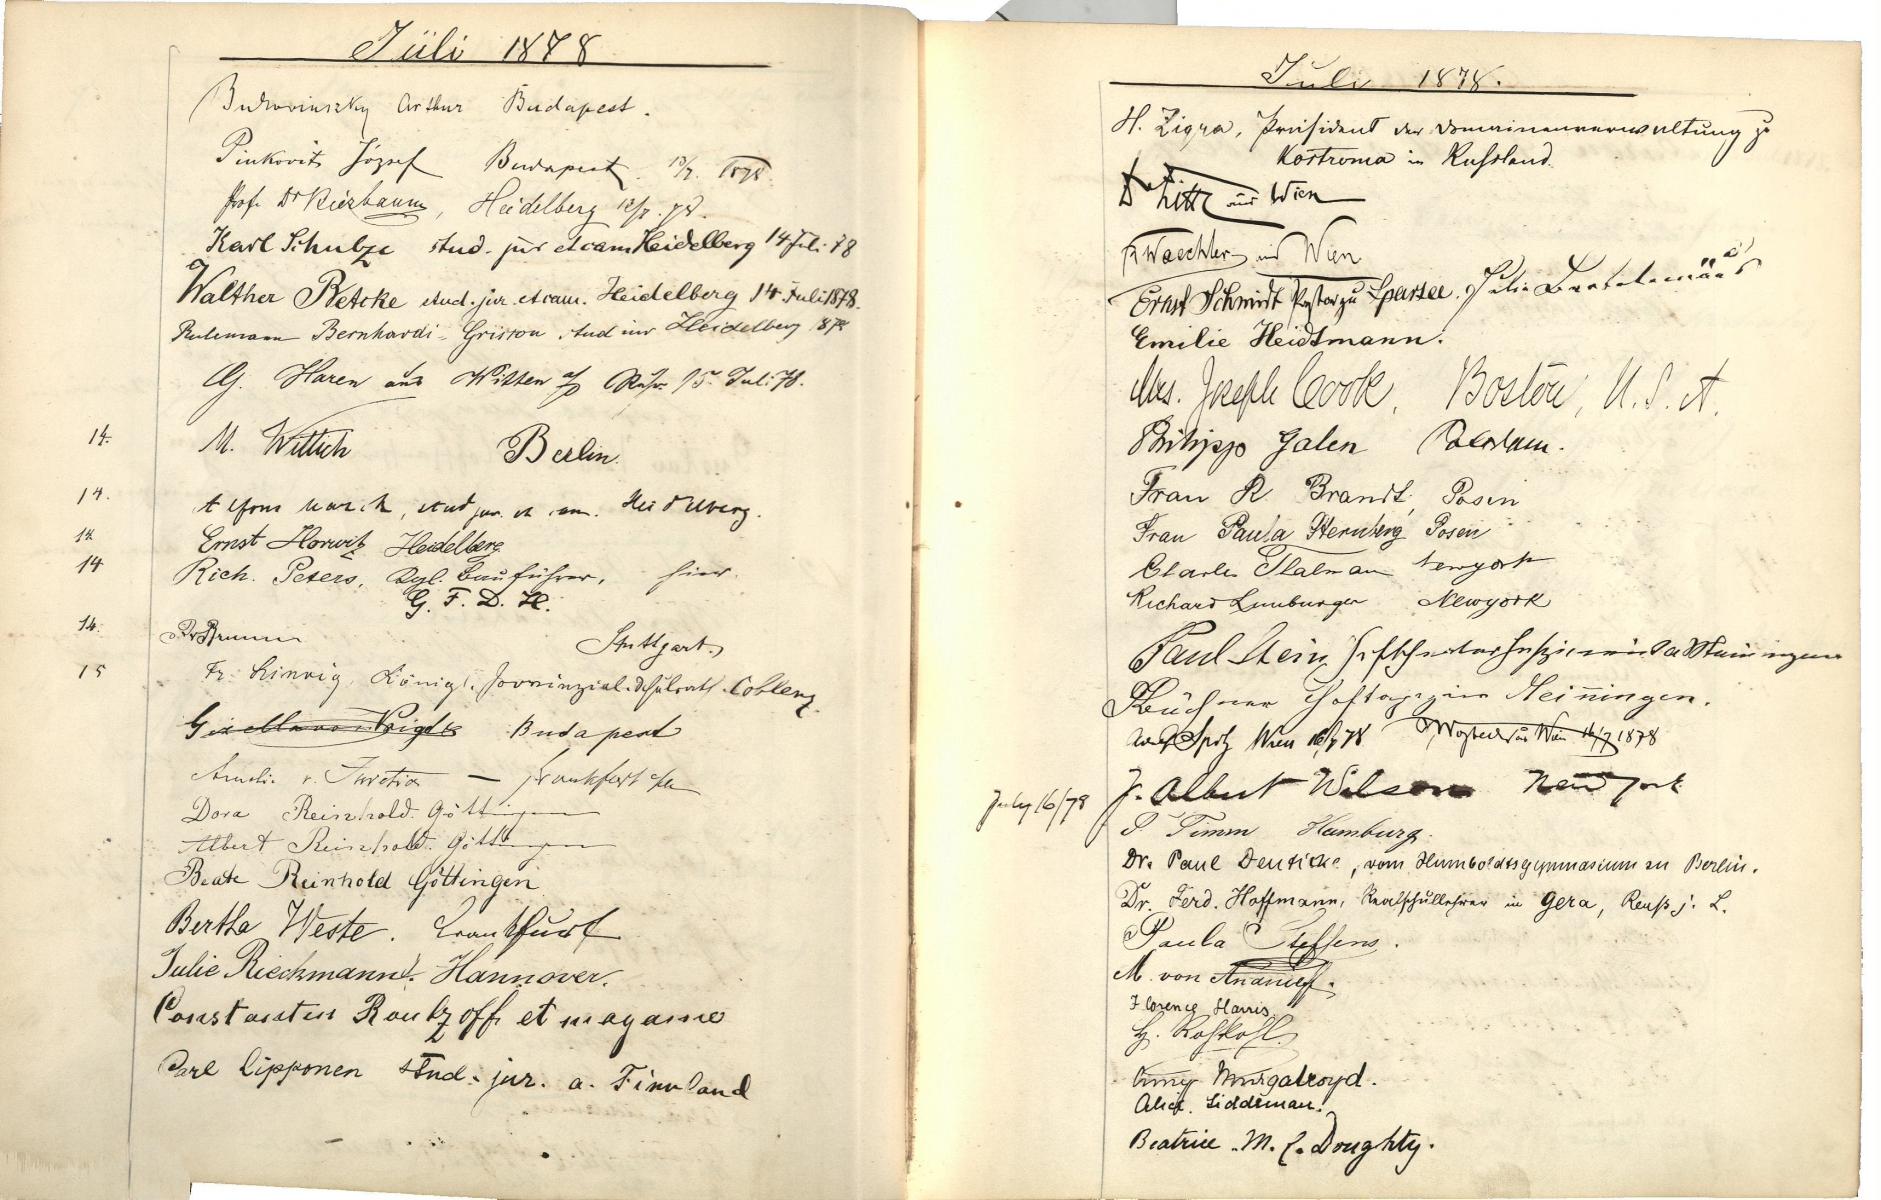 Juli 1878
Bukovinszky Arthur Budapest.
Pinkovits József Budapest 13/7. 1878.
Prof. Dr Bierbaum, Heidelberg 12/7. 78.
Karl Schulze stud. jur et cam Heidelberg 14 Juli 78
Walther Betcke stud. jur. et cam. Heidelberg 14. Juli 1878.
Bernhardi - Grisson stud iur Heidelberg 1878
G. Haren aus Witten a/d Ruhr 15. Juli 78.
14. M. Wittich Berlin.
14. Alfons , stud jur. et cam. Heidelberg.
14. Ernst Horwitz Heidelberg
14 Rich. Peters, Kgl. Bauführer, hier.
G. F. D. H.
14. Dr Brunn Stuttgart.
15 Fr. Linnig, Königl. Provinzial-Schulrath. Coblenz.
Budapest
v. — Frankfurt a/M
Dora Reinhold. Göttingen
Albert Reinhold. Göttingen
Beate Reinhold Göttingen
Bertha Weste. Frankfurt
Julie Rieckmann. Hannover.
Constantin Rautzoff et madame
Carl Lipponen stud. jur. a. Finnland
Juli 1878.
H. Zigra, Präsident der Domainenverwaltung zu
Kostroma in Russland.
Dr aus Wien
R Waechter aus Wien
Ernst Schmidt Pastor zu Sparsee. Julie
Emilie Heidtmann.
Mrs. Joseph Cook, Boston, U. S. A.
Philipp Galen Potsdam.
Frau R. Brandt, Posen
Frau Paula Sternberg Posen
Charles Thalman Newyork
Richard Limburger Newyork
Paul Stein, a Meiningen
Büchner Meiningen.
Spitz Wien 16/7 78 aus Wien 16/7 1878
July 16/78 J. Albert Wilson New York
S Timm Hamburg.
Dr. Paul Deuticke, vom Humboldtsgymnasium zu Berlin.
Dr. Ferd. Hoffmann, Realschullehrer in Gera, Reuß j. L.
Paula Steffens.
M. von Ananieff.
Florence Harris.
H. Roßkohl.
Amy Murgatroyd.
Alice Liddeman.
Beatrice. M. C. Doughty.